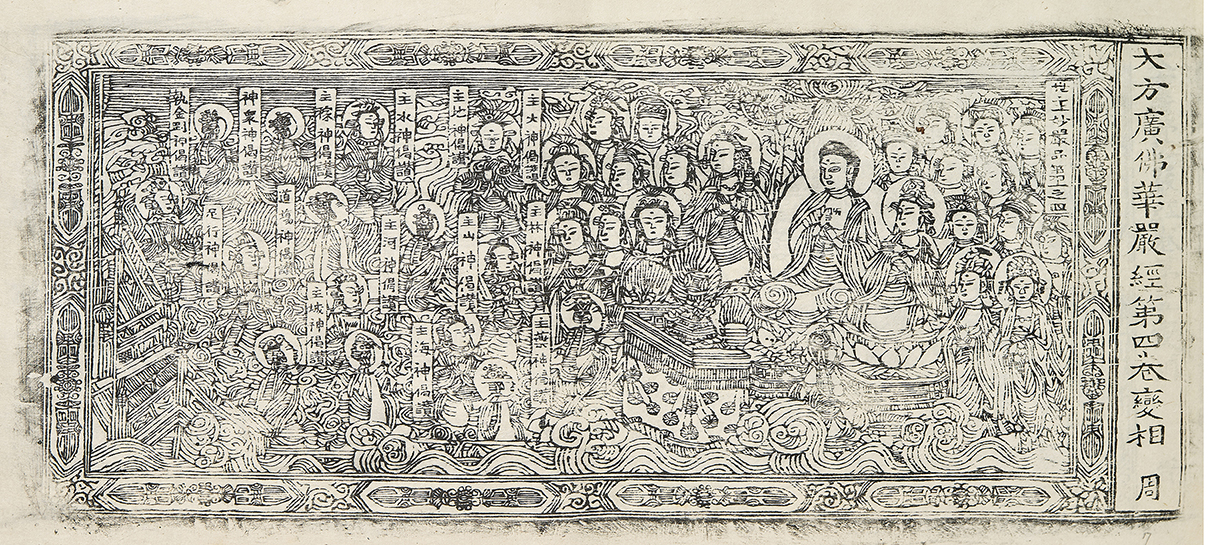 大方廣佛華嚴經第四卷變相 周
世主妙嚴品第一之四
主火神偈讚
主地神偈讚
主水神偈讚
主稼神偈讚
神衆神偈讚
執金剛神偈讚
主林神偈讚
主山神偈讚
主河神偈讚
道場神偈
足行神偈讚
主神
主海神偈讚
主城神偈讚
7